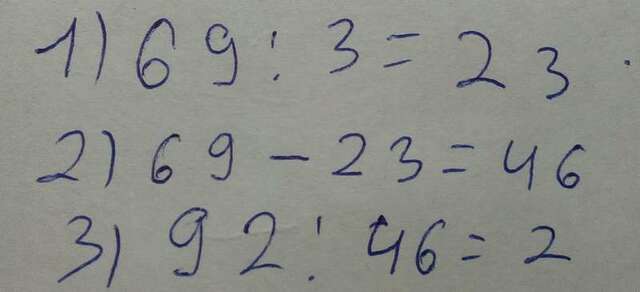 1) 69 : 3 = 23
2) 69 - 23 = 46
3) 92 : 46 = 2